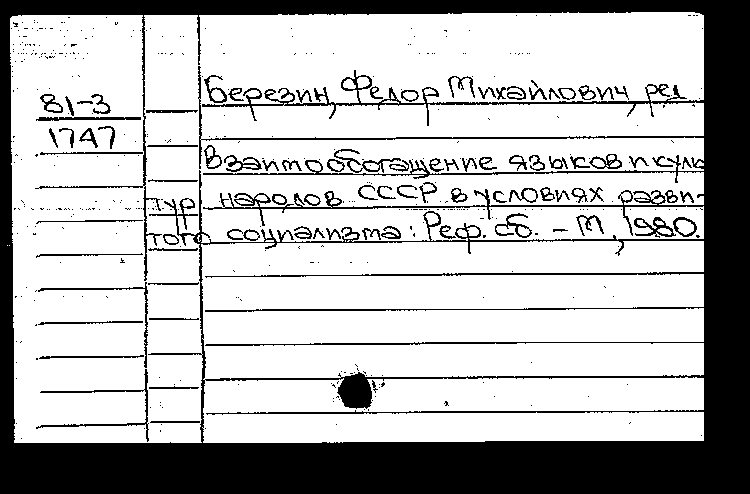 Березин, Федор Михайлович, ред
81-3
1747
Взаимообогащение языков и куль
тур народов СССР в условиях разви-
того социализма: Реф. сб. - М, 1980.